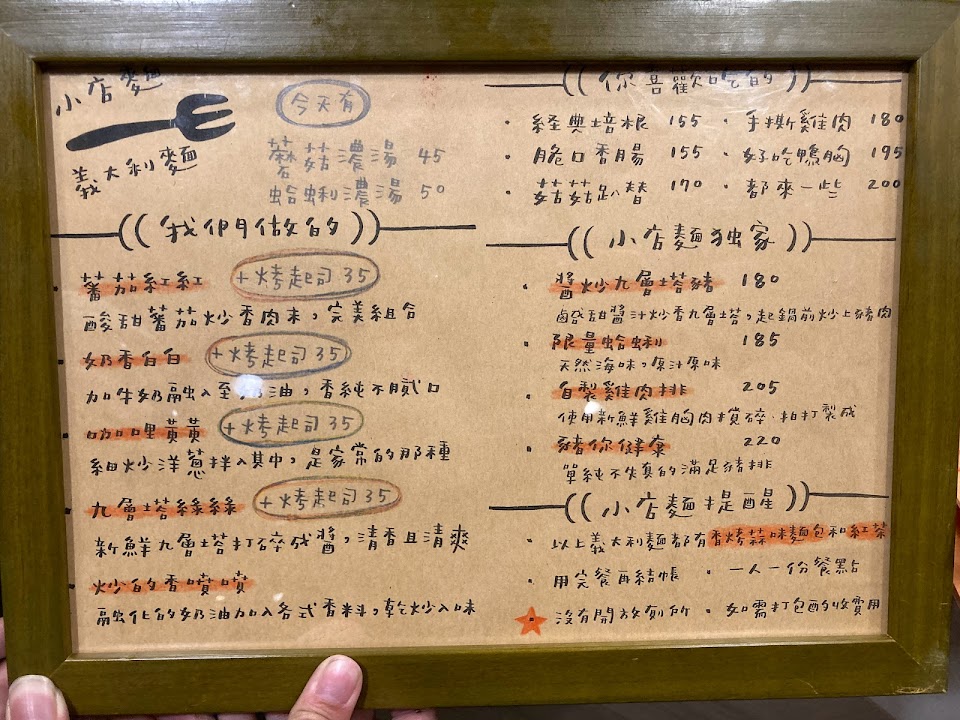 小店麵
義大利麵
今天有
蘑菇濃湯 45
蛤蜊濃湯 50
((我們做的))
蕃茄紅紅 +烤起司35
酸甜蕃茄炒香肉末,完美組合
奶香白白 +烤起司35
加牛奶融入至奶油,香純不膩口
咖哩黃黃 +烤起司35
細炒洋蔥拌入其中,是家常的那種
九層塔綠綠 +烤起司35
新鮮九層塔打碎成醬,清香且清爽
炒的香噴噴
融化的奶油加入各式香料,乾炒入味
((你喜歡吃的))
· 經典培根 155 · 手撕雞肉 180
· 脆口香腸 155 · 好吃鴨胸 195
· 菇菇趴替 170 · 都來一些 200
((小店麵独家))
· 醬炒九層塔豬 180
鹹甜醬汁炒香九層塔,起鍋前炒上豬肉
· 限量蛤蜊 185
天然海味,原汁原味
· 自製雞肉排 205
使用新鮮雞胸肉攪碎、拍打製成
· 豬你健康 220
單純不失真的滿足豬排
((小店麵提醒))
· 以上義大利麵都有香烤蒜味麵包和紅茶
· 用完餐再結帳 · 一人一份餐點
· 沒有開放廁所 · 如需打包酌收費用